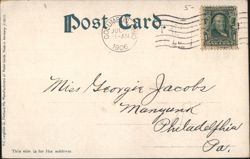 5-
Post Card.
1906
Miss Georgie Jacobs
Manyunk
Philadelphia
Pa.
This side is for the address.